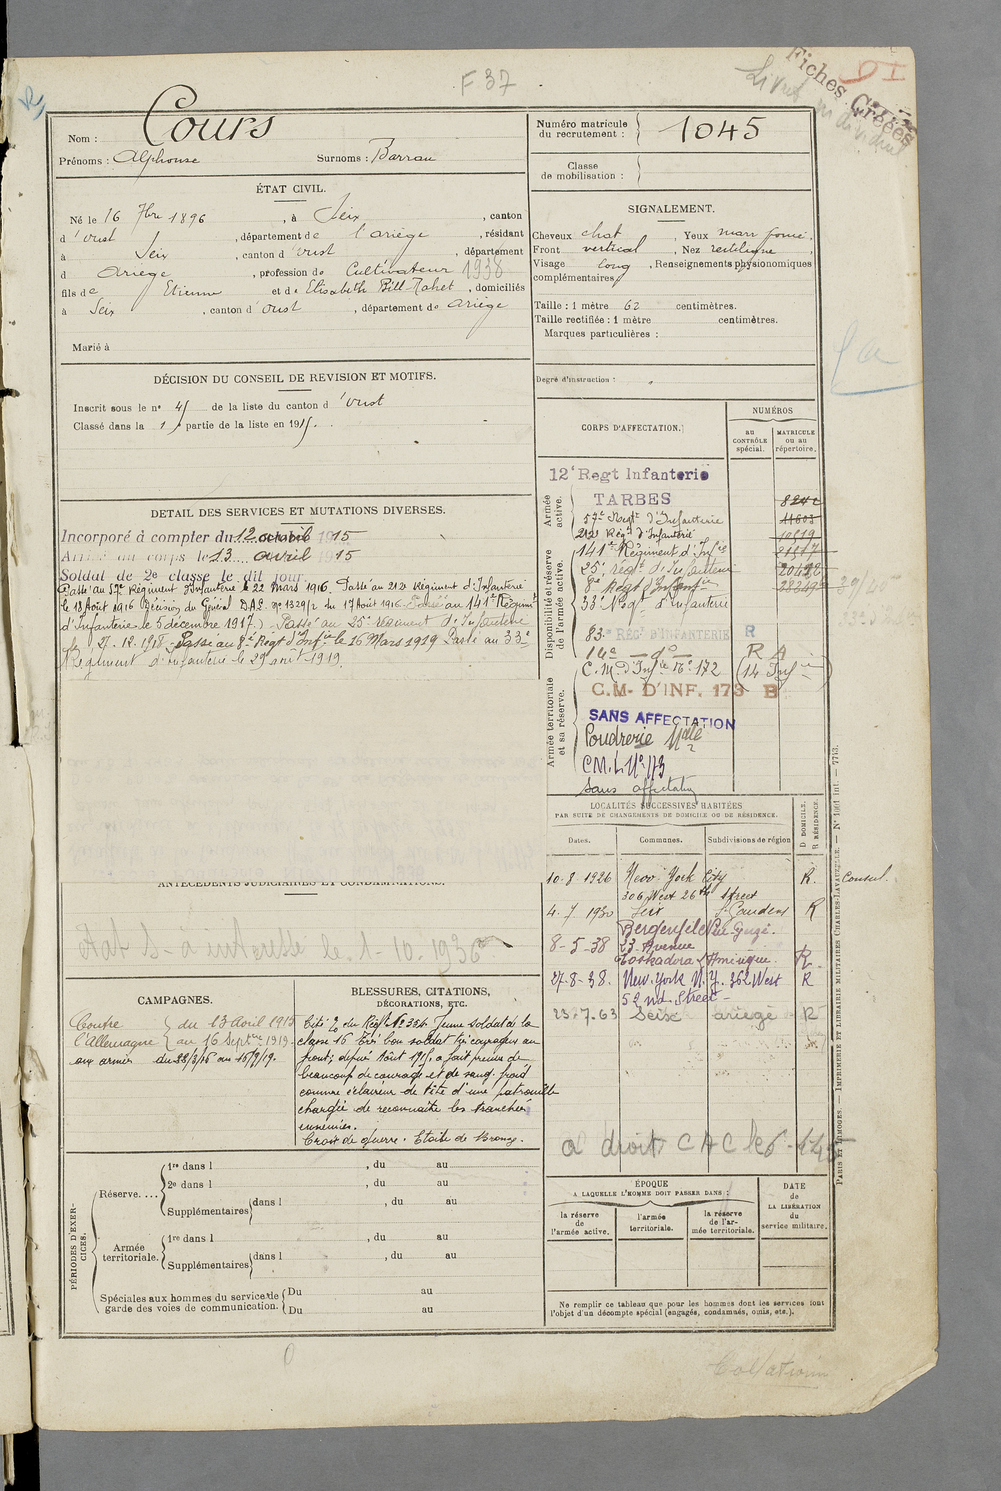 F 37
Fiches Créées
Livret individuel
Nom : Cours
Prénoms : Alphonse Surnoms : Barrau
Numéro matricule du recrutement : 1045
Classe de mobilisation :
ÉTAT CIVIL.
Né le 16 7bre 1896, à Seix, canton
d'Oust, département de l'ariège, résidant
à Seix, canton d'Oust, département
d Ariège, profession de Cultivateur 1938
fils de Etienne et de Elisabeth Bill-Tahet, domiciliés
à Seix, canton d'Oust, département de Ariège
Marié à
SIGNALEMENT.
Cheveux chat, Yeux marr foncé.
Front vertical, Nez rectiligne
Visage long, Renseignements physionomiques
complémentaires
Taille : 1 mètre 62 centimètres.
Taille rectifiée : 1 mètre centimètres.
Marques particulières :
Degré d'instruction :
DÉCISION DU CONSEIL DE REVISION ET MOTIFS.
Inscrit sous le no 45 de la liste du canton d'Oust
Classé dans la 1 partie de la liste en 1915.
DÉTAIL DES SERVICES ET MUTATIONS DIVERSES.
Incorporé à compter du 12 avril 1915
Arrivé au corps le 13 avril 1915
Soldat de 2e classe le dit jour.
Passé au 57e Régiment d'Infanterie le 22 Mars 1916. Passé au 212 Régiment d'Infanterie
le 18 Août 1916 (Décision du Général D.A.E. No 1329/2 du 17 Août 1916. Passé au 141e Régiment
d'Infanterie le 5 décembre 1917.) Passé au 25e Régiment d'Infanterie
le 27.12.1918 - Passé au 8e Régt d'Infie le 16 Mars 1919 Passé au 33e
Régiment d'Infanterie le 29 août 1919.
CORPS D'AFFECTATION.
NUMÉROS
au CONTRÔLE spécial.
MATRICULE ou au répertoire.
Armée active.
Disponibilité et réserve de l'armée active.
Armée territoriale et sa réserve.
12e Regt Infanterie
TARBES
57e Régt d'Infanterie
212 Régt d'Infanterie 10519
141e Régiment d'Infie
25e régt d'Infanterie
8e Régt d'Infie
33e Régt d'Infanterie
83e RÉGt D'INFANTERIE R
14e — do — R A
C.M. d'Infie No 172 (14 Infie)
C.M- D'INF. 173 B
SANS AFFECTATION
Poudrerie Nale
C.M.I. No 173
Sans affectation
LOCALITÉS SUCCESSIVES HABITÉES
PAR SUITE DE CHANGEMENTS DE DOMICILE OU DE RÉSIDENCE.
Dates. Communes. Subdivisions de région
D DOMICILE.
R RÉSIDENCE.
10-8-1926 New York City R. Consul.
306 West 26th Street
4-7-1930 Seix St Gaudens R
8-5-38 Bergenfield
23 Avenue
Amérique. R.
27-8-38. New York N.Y. 362 West R
52nd Street
23-7.63 Seix ariège R
a droit CAC le
ANTÉCÉDENTS JUDICIAIRES ET CONDAMNATIONS.
CAMPAGNES.
Contre l'Allemagne du 13 Avril 1915
au 16 Septbre 1919.
aux armées du 28/3/16 au 16/9/19.
BLESSURES, CITATIONS,
DÉCORATIONS, ETC.
Cité O. du Régt No 334 Jeune soldat de la
classe 16 Très bon soldat très courageux au
front; depuis Août 1915, a fait preuve de
beaucoup de courage et de sang-froid
comme éclaireur de tête d'une patrouille
chargée de reconnaître les tranchées
ennemies.
Croix de guerre. Etoile de Bronze.
PÉRIODES D'EXERCICES.
Réserve....
1re dans l , du au
2e dans l , du au
Supplémentaires dans l , du au
Armée territoriale.
1re dans l , du au
Supplémentaires dans l , du au
Spéciales aux hommes du service de garde des voies de communication.
Du au
Du au
ÉPOQUE
A LAQUELLE L'HOMME DOIT PASSER DANS :
la réserve de l'armée active.
l'armée territoriale.
la réserve de l'armée territoriale.
DATE de LA LIBÉRATION du service militaire.
Ne remplir ce tableau que pour les hommes dont les services font
l'objet d'un décompte spécial (engagés, condamnés, omis, etc.).
PARIS ET LIMOGES. — IMPRIMERIE ET LIBRAIRIE MILITAIRES CHARLES-LAVAUZELLE. — No 1001 int. — 7713.